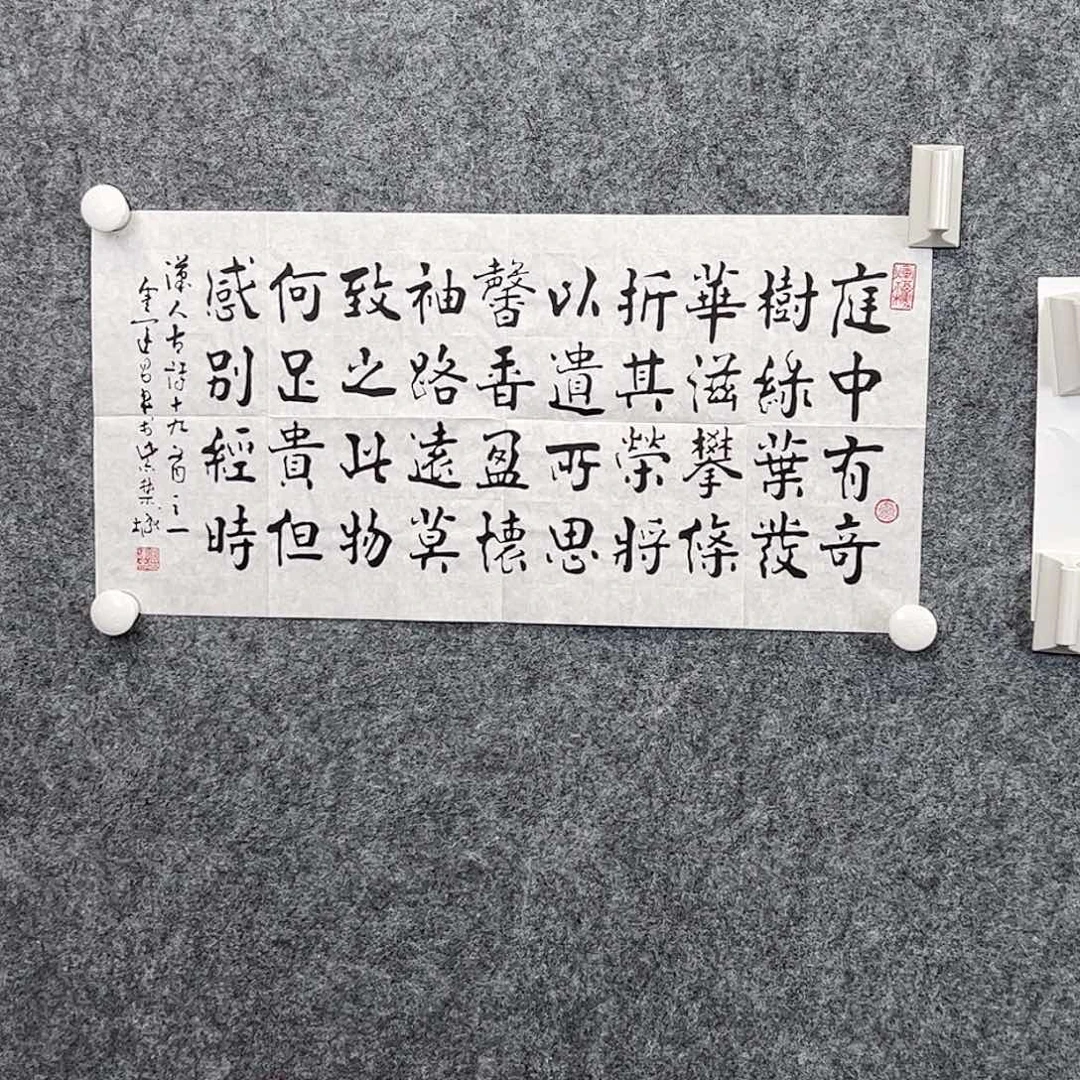 庭中有奇
樹綠葉發
華滋攀條
折其榮將
以遺所思
馨香盈懷
袖路遠莫
致之此物
何足貴但
感別經時
漢人古詩十九首之一